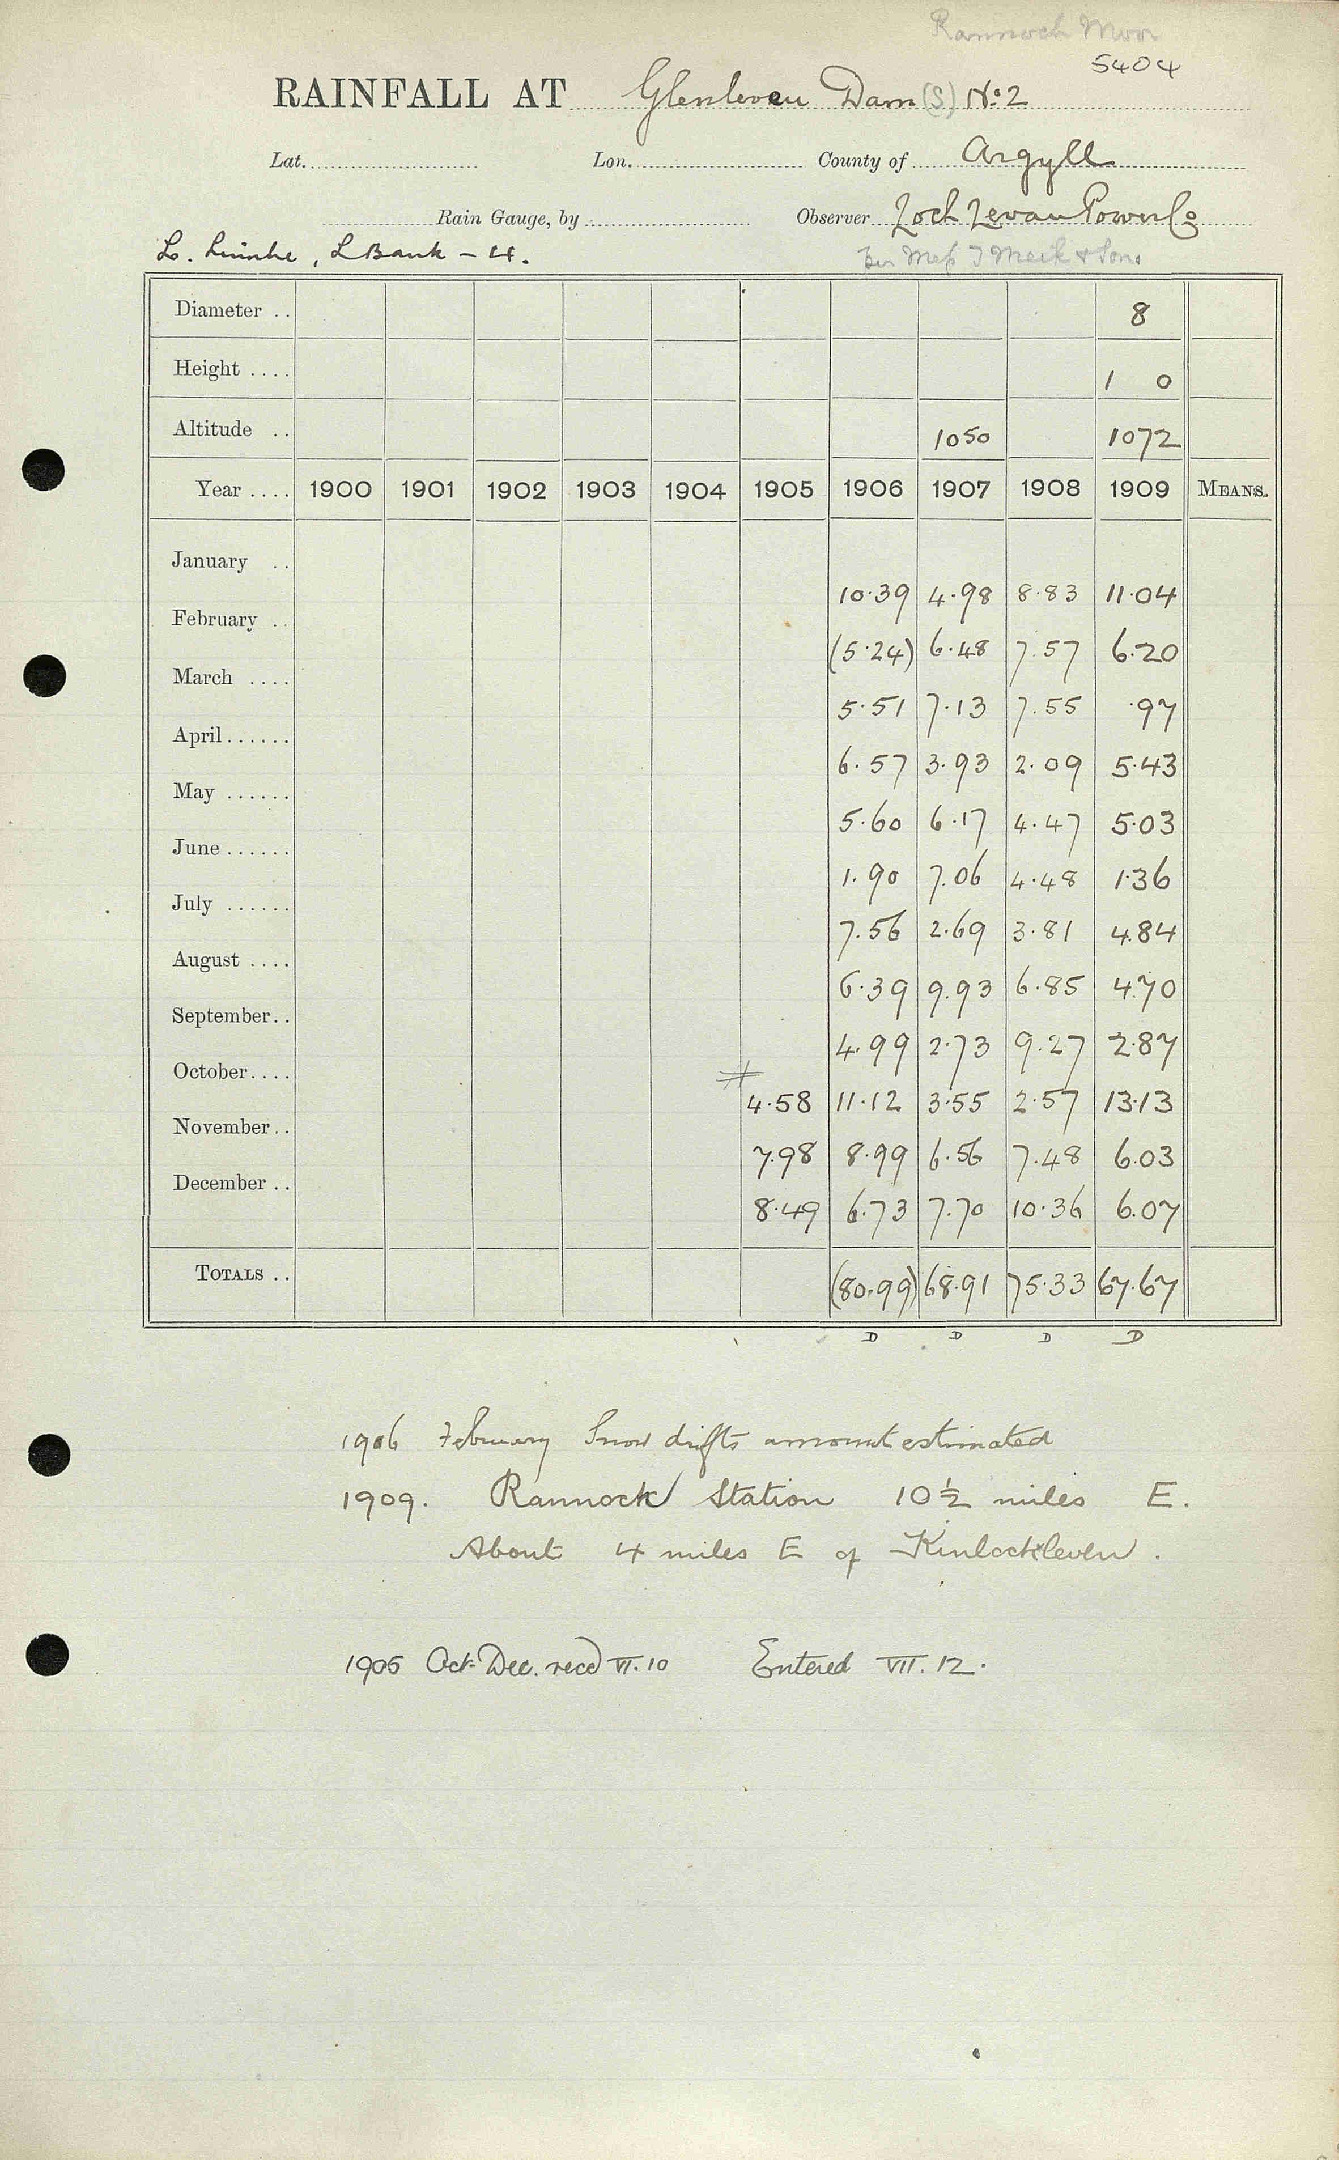 Rannoch Moor
5404
RAINFALL AT Glenleven Dam (S) No. 2
Lat. Lon. County of Argyll
Rain Gauge, by Observer Loch Levan Power Co
L. Linnhe, L Bank - 4. Per Mess J Meik & Sons
Diameter .. 8
Height .... 1 0
Altitude .. 1050 1072
Year .... 1900 1901 1902 1903 1904 1905 1906 1907 1908 1909 MEANS.
January .. 10.39 4.98 8.83 11.04
February .. (5.24) 6.48 7.57 6.20
March .... 5.51 7.13 7.55 .97
April...... 6.57 3.93 2.09 5.43
May ...... 5.60 6.17 4.47 5.03
June ...... 1.90 7.06 4.48 1.36
July ...... 7.56 2.69 3.81 4.84
August .... 6.39 9.93 6.85 4.70
September.. 4.99 2.73 9.27 2.87
October.... 4.58 11.12 3.55 2.57 13.13
November.. 7.98 8.99 6.56 7.48 6.03
December .. 8.49 6.73 7.70 10.36 6.07
TOTALS .. (80.99) 68.91 75.33 67.67
D D D D
1906 February Snow drifts amount estimated
1909. Rannoch Station 10½ miles E.
About 4 miles E of Kinlochleven.
1905 Oct-Dec. recd VI.10 Entered VII.12.